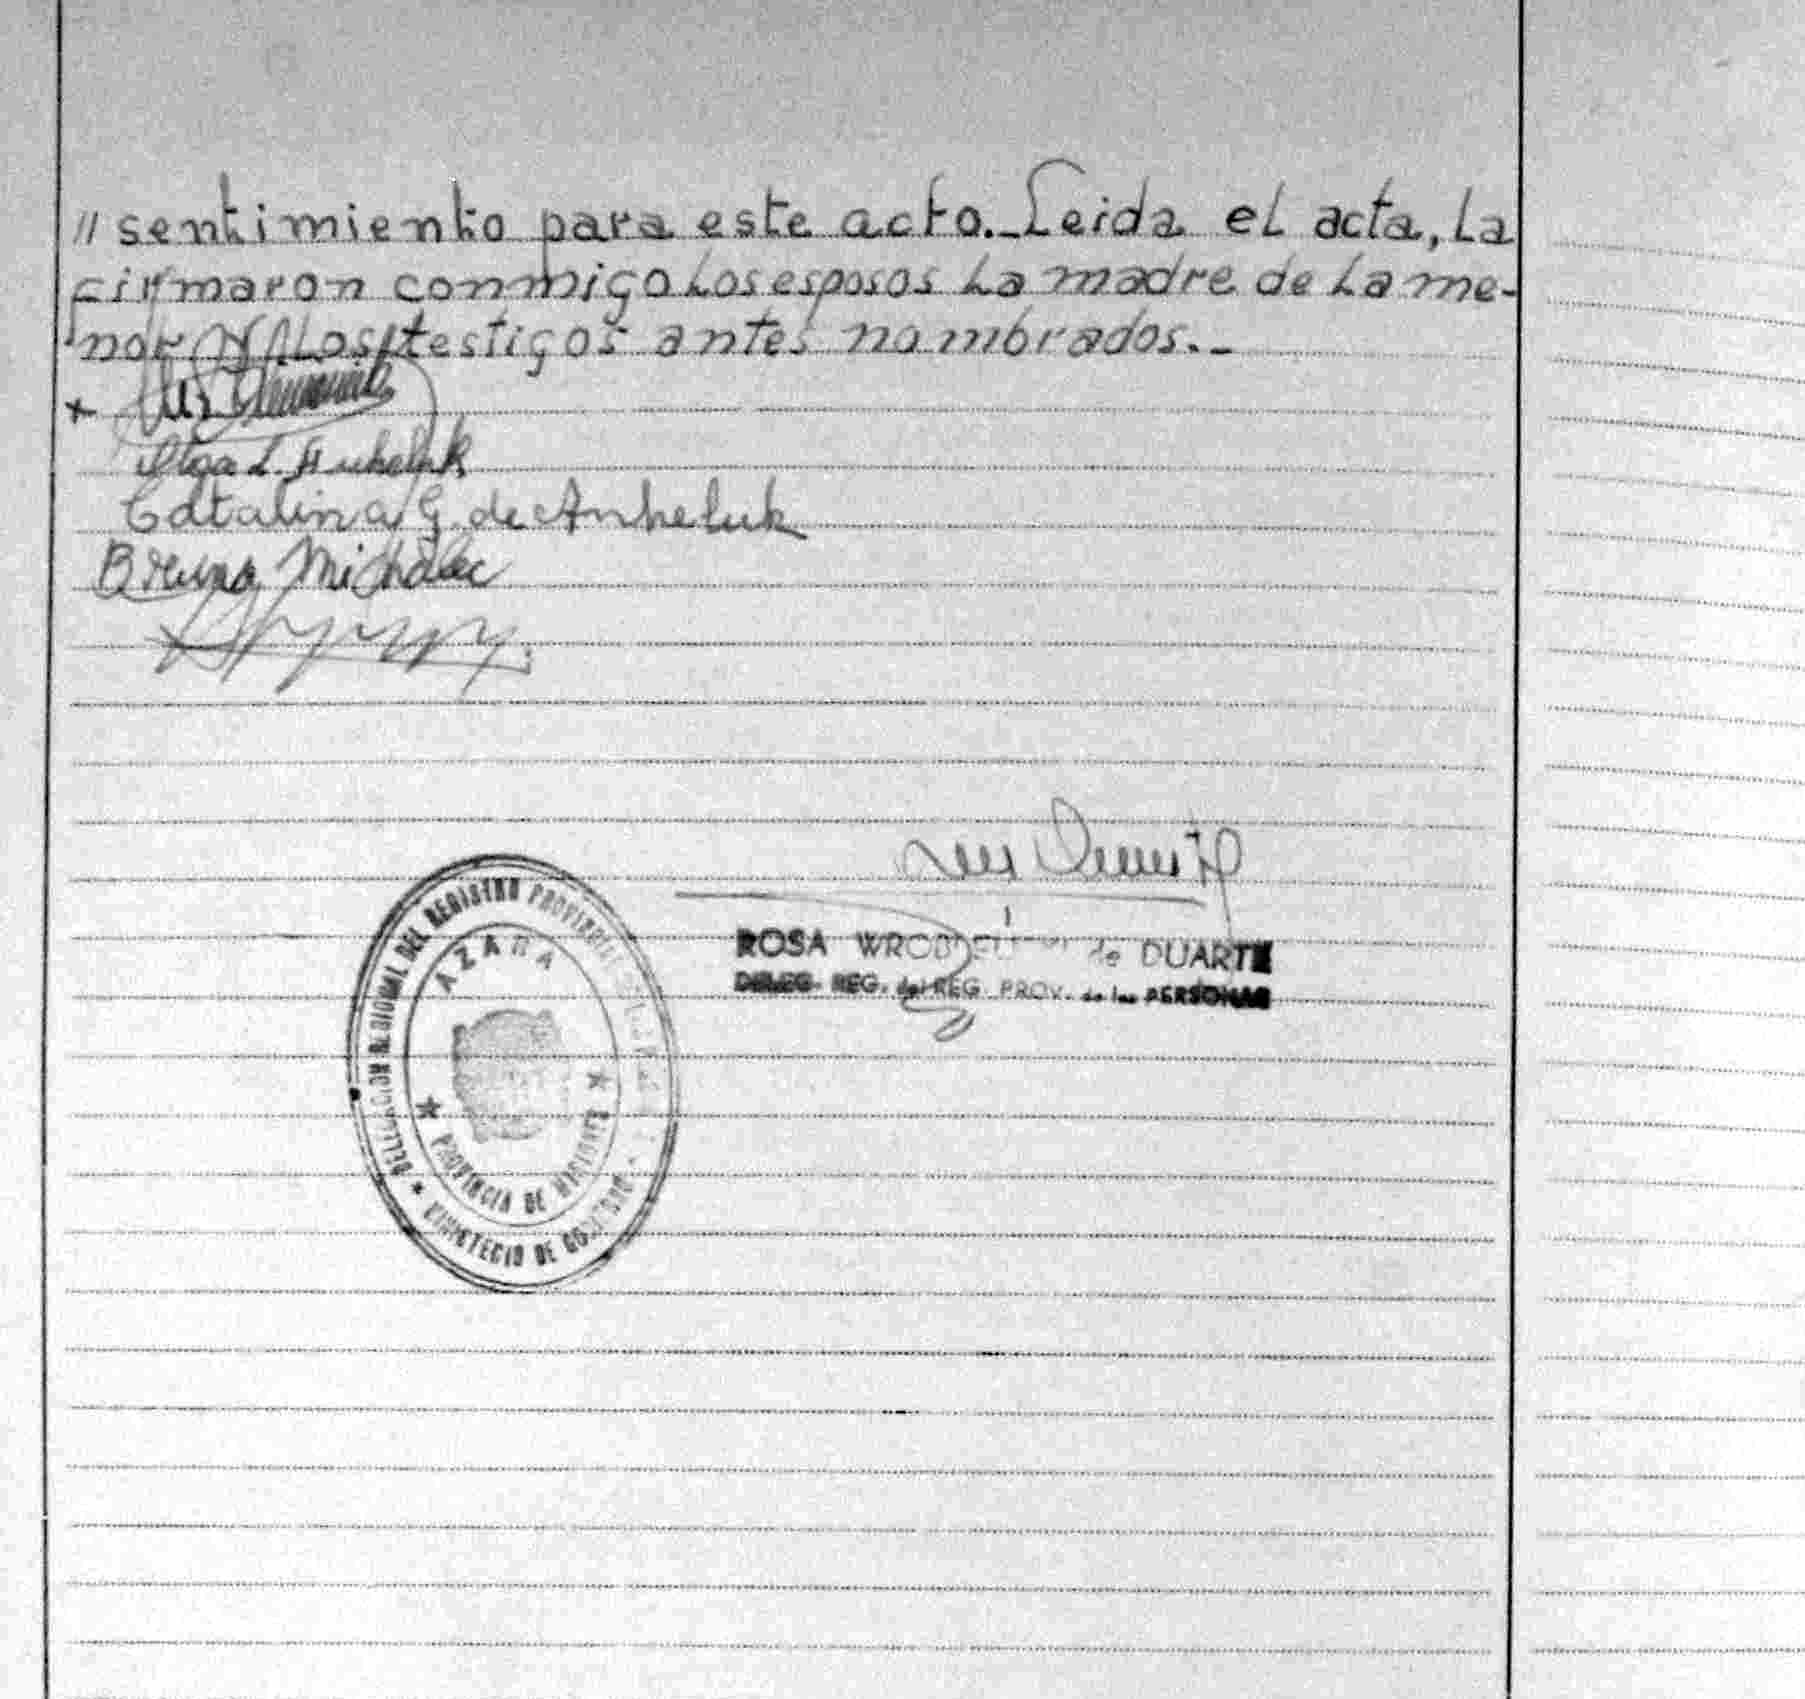 // sentimiento para este acto._Leida el acta, la
firmaron conmigo los esposos la madre de la me-
nor y los testigos antes nombrados._
Olga L. Anheluk
Catalina G. de Anheluk
Bruno Michalec
ROSA de DUARTE
DELEG. REG. del REG. PROV. de las PERSONAS
DELEGACION REGIONAL DEL REGISTRO PROVINCIAL
AZARA
PROVINCIA DE MISIONES
MINISTERIO DE GOBIERNO